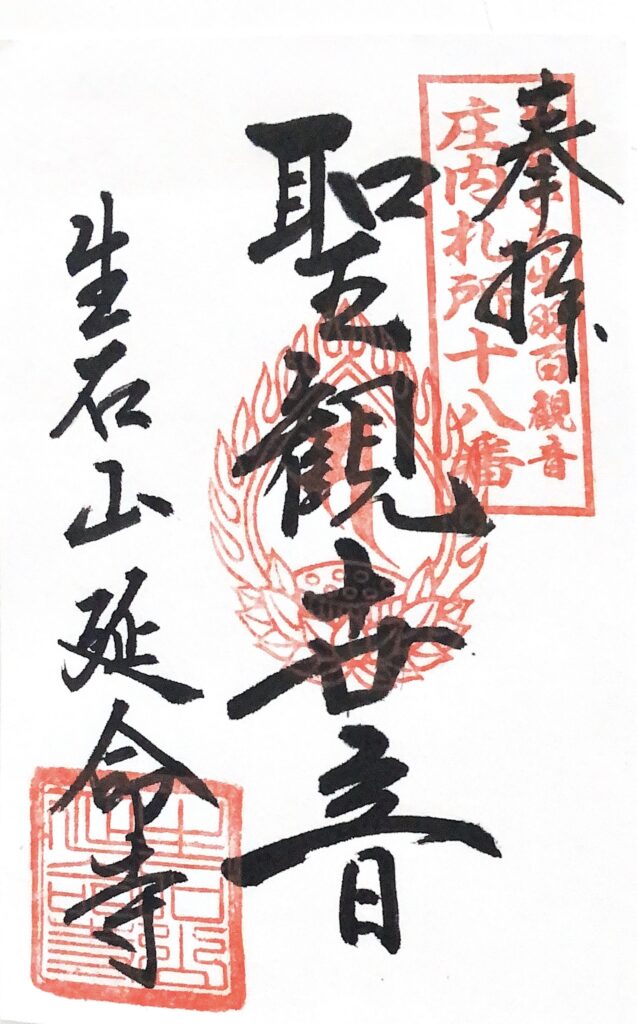 奉拝
出羽百観音
庄内札所十八番
聖観世音
生石山延命寺